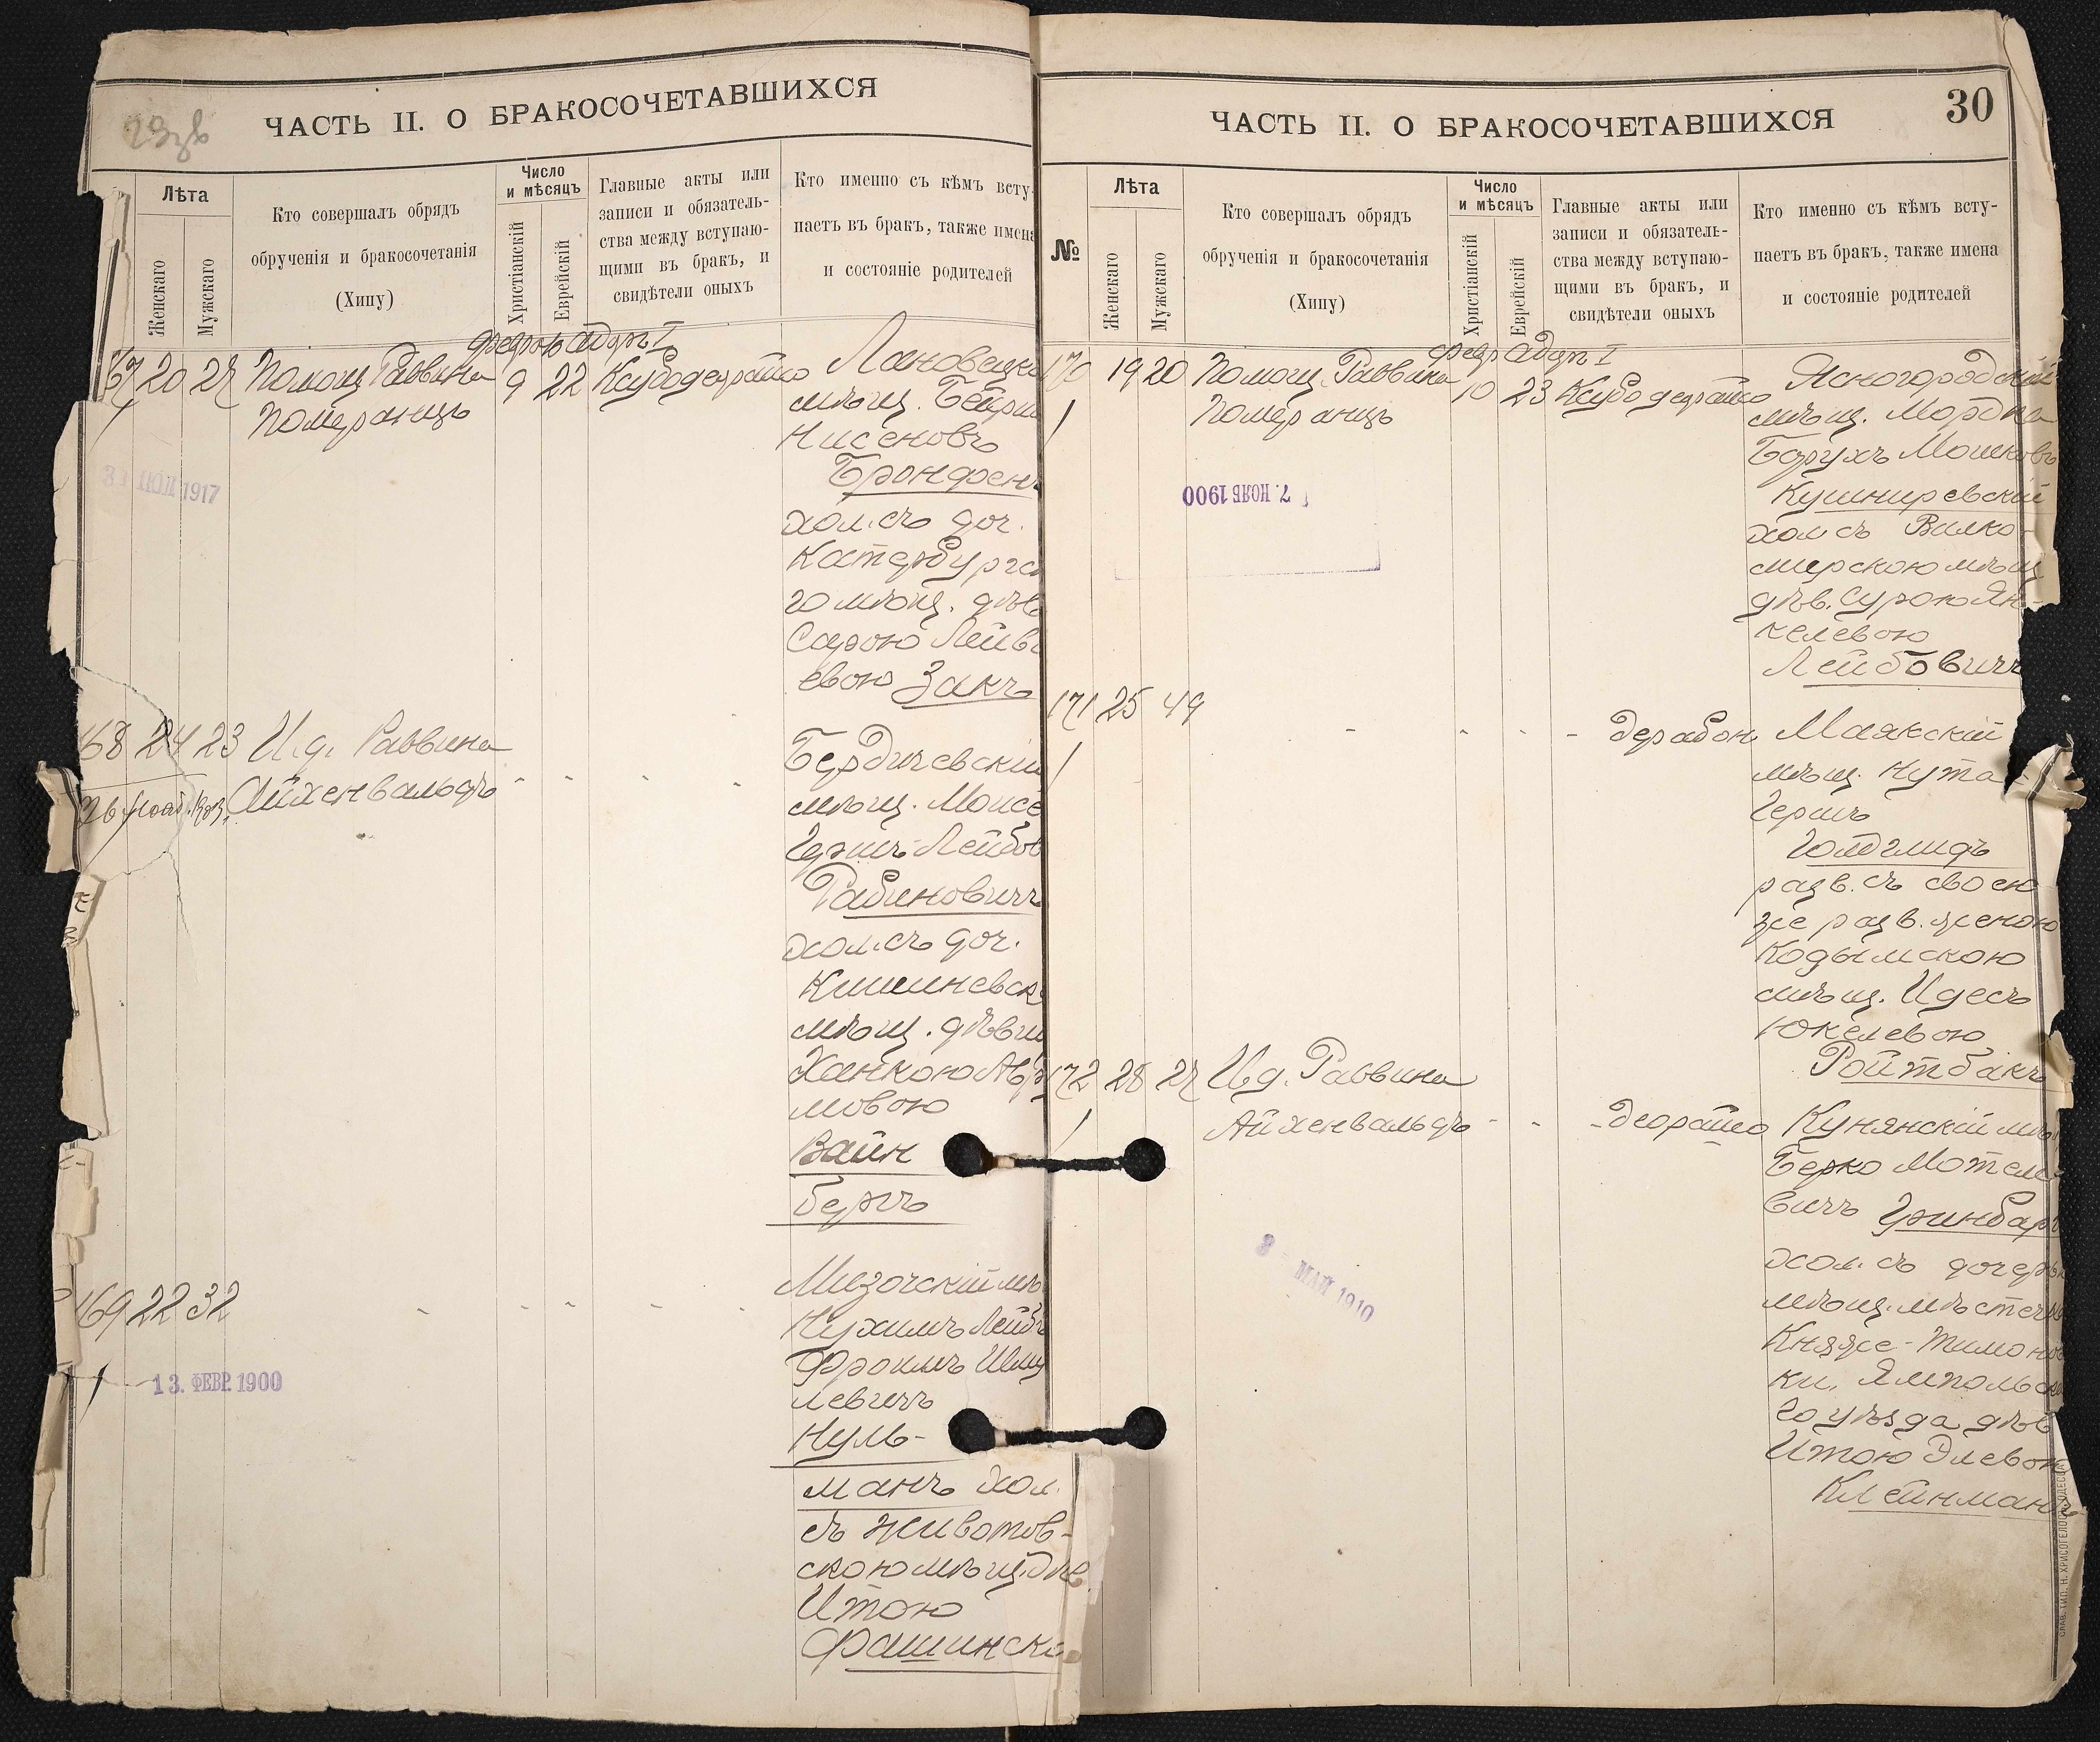 ЧАСТЬ II. О БРАКОСОЧЕТАВШИХСЯ
Лѣта
Женскаго
Мужскаго
Кто совершалъ обрядъ
обрученія и бракосочетанія
(Хипу)
Число
и мѣсяцъ
Христіанскій
Еврейскій
Главные акты или
записи и обязатель-
ства между вступаю-
щими въ бракъ, и
свидѣтели оныхъ
Кто именно съ кѣмъ всту
паетъ въ бракъ, также имена
и состояніе родителей
Адаръ I
67 20 27 Помощ. Раввина 9 22 Ксубо дерайсо
Померанцъ
Лановецк
мѣщ. Бейриш
Нисеновъ
Бронфен
хол. съ доч.
Катербургс
го мѣщ. дѣв
Сарою Лейв
евою Закъ
31 ІЮЛ 1917
68 24 23 И. д. Раввина
Айхенвальдъ
Бердичевскій
мѣщ. Мойсе
Гершъ Лейбов
Рабиновичъ
хол. съ доч.
Кишиневск
мѣщ. дѣвиц
Ханкою Абр
мовою
Вайн
бергъ
69 22 32
13. ФЕВР. 1900
Мизочскій мѣ
Нухимъ Лейбъ
Фроимъ Шму
левичъ
Нуль-
манъ хол.
съ Животов-
скою мѣщ. дѣв.
Итою
Фашинск
ЧАСТЬ II. О БРАКОСОЧЕТАВШИХСЯ
30
№
Лѣта
Женскаго
Мужскаго
Кто совершалъ обрядъ
обрученія и бракосочетанія
(Хипу)
Число
и мѣсяцъ
Христіанскій
Еврейскій
Главные акты или
записи и обязатель-
ства между вступаю-
щими въ бракъ, и
свидѣтели оныхъ
Кто именно съ кѣмъ всту-
паетъ въ бракъ, также имена
и состояніе родителей
Февр Адаръ I
170 19 20 Помощ. Раввина 10 23 Ксубо дерайсо
Померанцъ
7. НОЯБ 1900
Ясногородскій
мѣщ. Мордко
Борухъ Мошковъ
Кушнировскій
хол съ Вилко-
мирскою мѣщ
дѣв. Сурою Ян-
келевою
Лейбовичъ
171 25 49
Дерабон
Маякскій
мѣщ. Нута
Гершъ
Голдглидъ
разв. съ своею
же разв. женою
Кодымскою
мѣщ. Идесъ
Юкелевою
Ройтбакъ
172 28 27 И. д. Раввина
Айхенвальдъ
Деорайсо
8 - МАЙ 1910
Кунянскій мѣ
Берко Мотеле
вичъ Гринбар
хол. съ дочер
мѣщ. мѣстеч
Княже-Тимонов
ки, Ямпольск
го уѣзда дѣв
Итою Элевою
Клейманъ